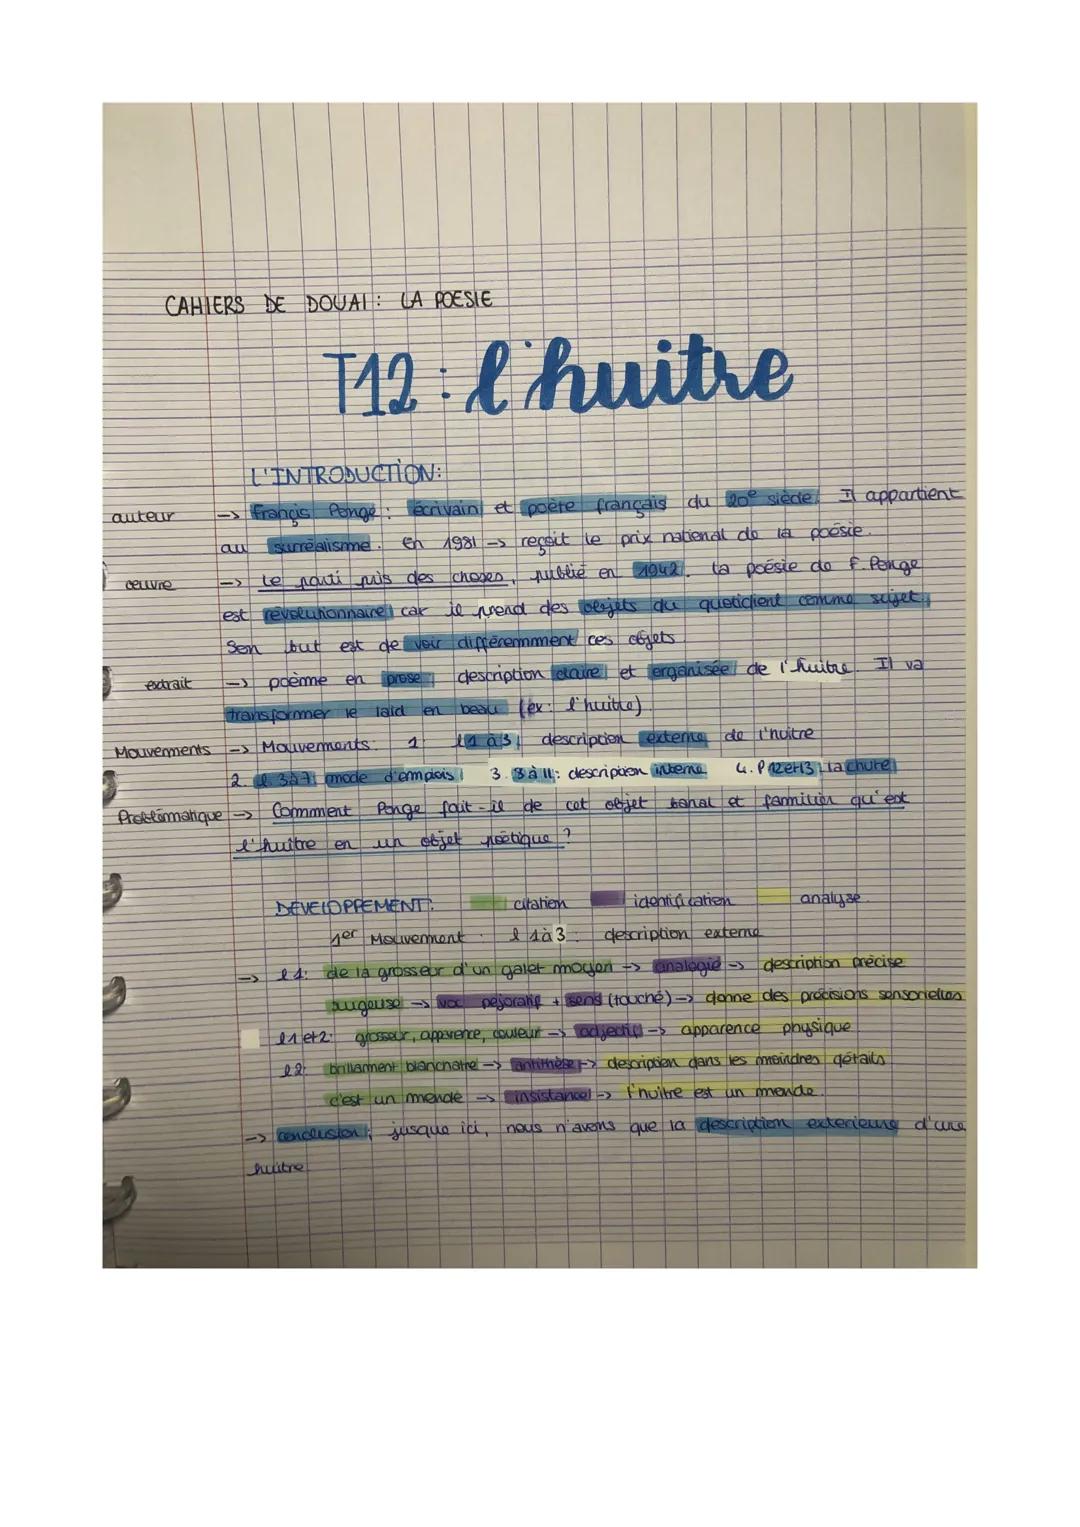 CAHIERS DE DOUAI : LA POESIE
T12 : l'huitre
L'INTRODUCTION:
auteur -> Françis Ponge : écrivain et poète français du 20e siècle. Il appartient
au surréalisme. En 1981 -> reçoit le prix national de la poésie.
oeuvre -> Le parti pris des choses, publié en 1942. La poésie de F. Ponge
est révolutionnaire car il prend des objets du quotidient comme sujet.
Son but est de voir différemment ces objets
extrait -> poème en prose ; description claire et organisée de l'huitre. Il va
transformer le laid en beau (ex: l'huitre).
Mouvements -> Mouvements: 1: l1 à 3 ; description externe de l'huitre
2. l. 3 à 7 ; mode d'emplois ; 3. 8 à 11 : description interne 4. P 12 et 13 : la chute
Problématique -> Comment Ponge fait-il de cet objet banal et familier qu'est
l'huître en un objet poètique ?
DEVELOPPEMENT: citation identification analyse
1er Mouvement : l 1 à 3 : description externe
-> l1: de la grosseur d'un galet moyen -> analogie -> description précise
rugeuse -> voc pejoratif + sens (touché) -> donne des précisions sensorielles
l1 et 2: grosseur, apparence, couleur -> adjectif -> apparence physique
l2: brillament blanchatre -> antithèse -> description dans les moindres détails
c'est un monde -> insistance -> l'huitre est un monde.
-> conclusion ; jusque ici, nous n'avons que la description exterieure d'une
huitre